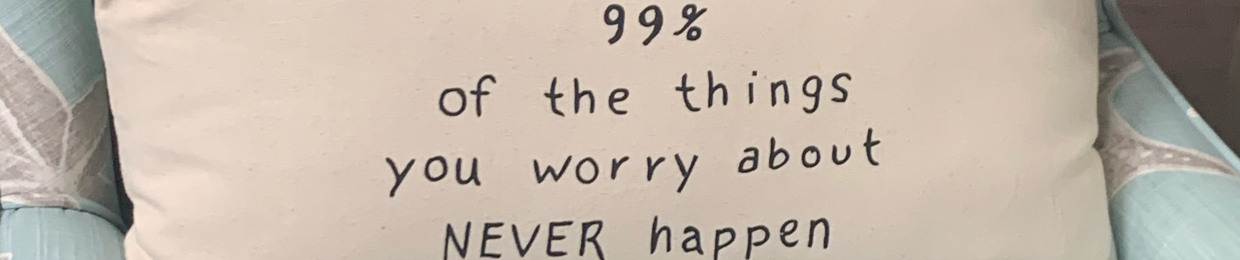 99%
of the things
you worry about
NEVER happen